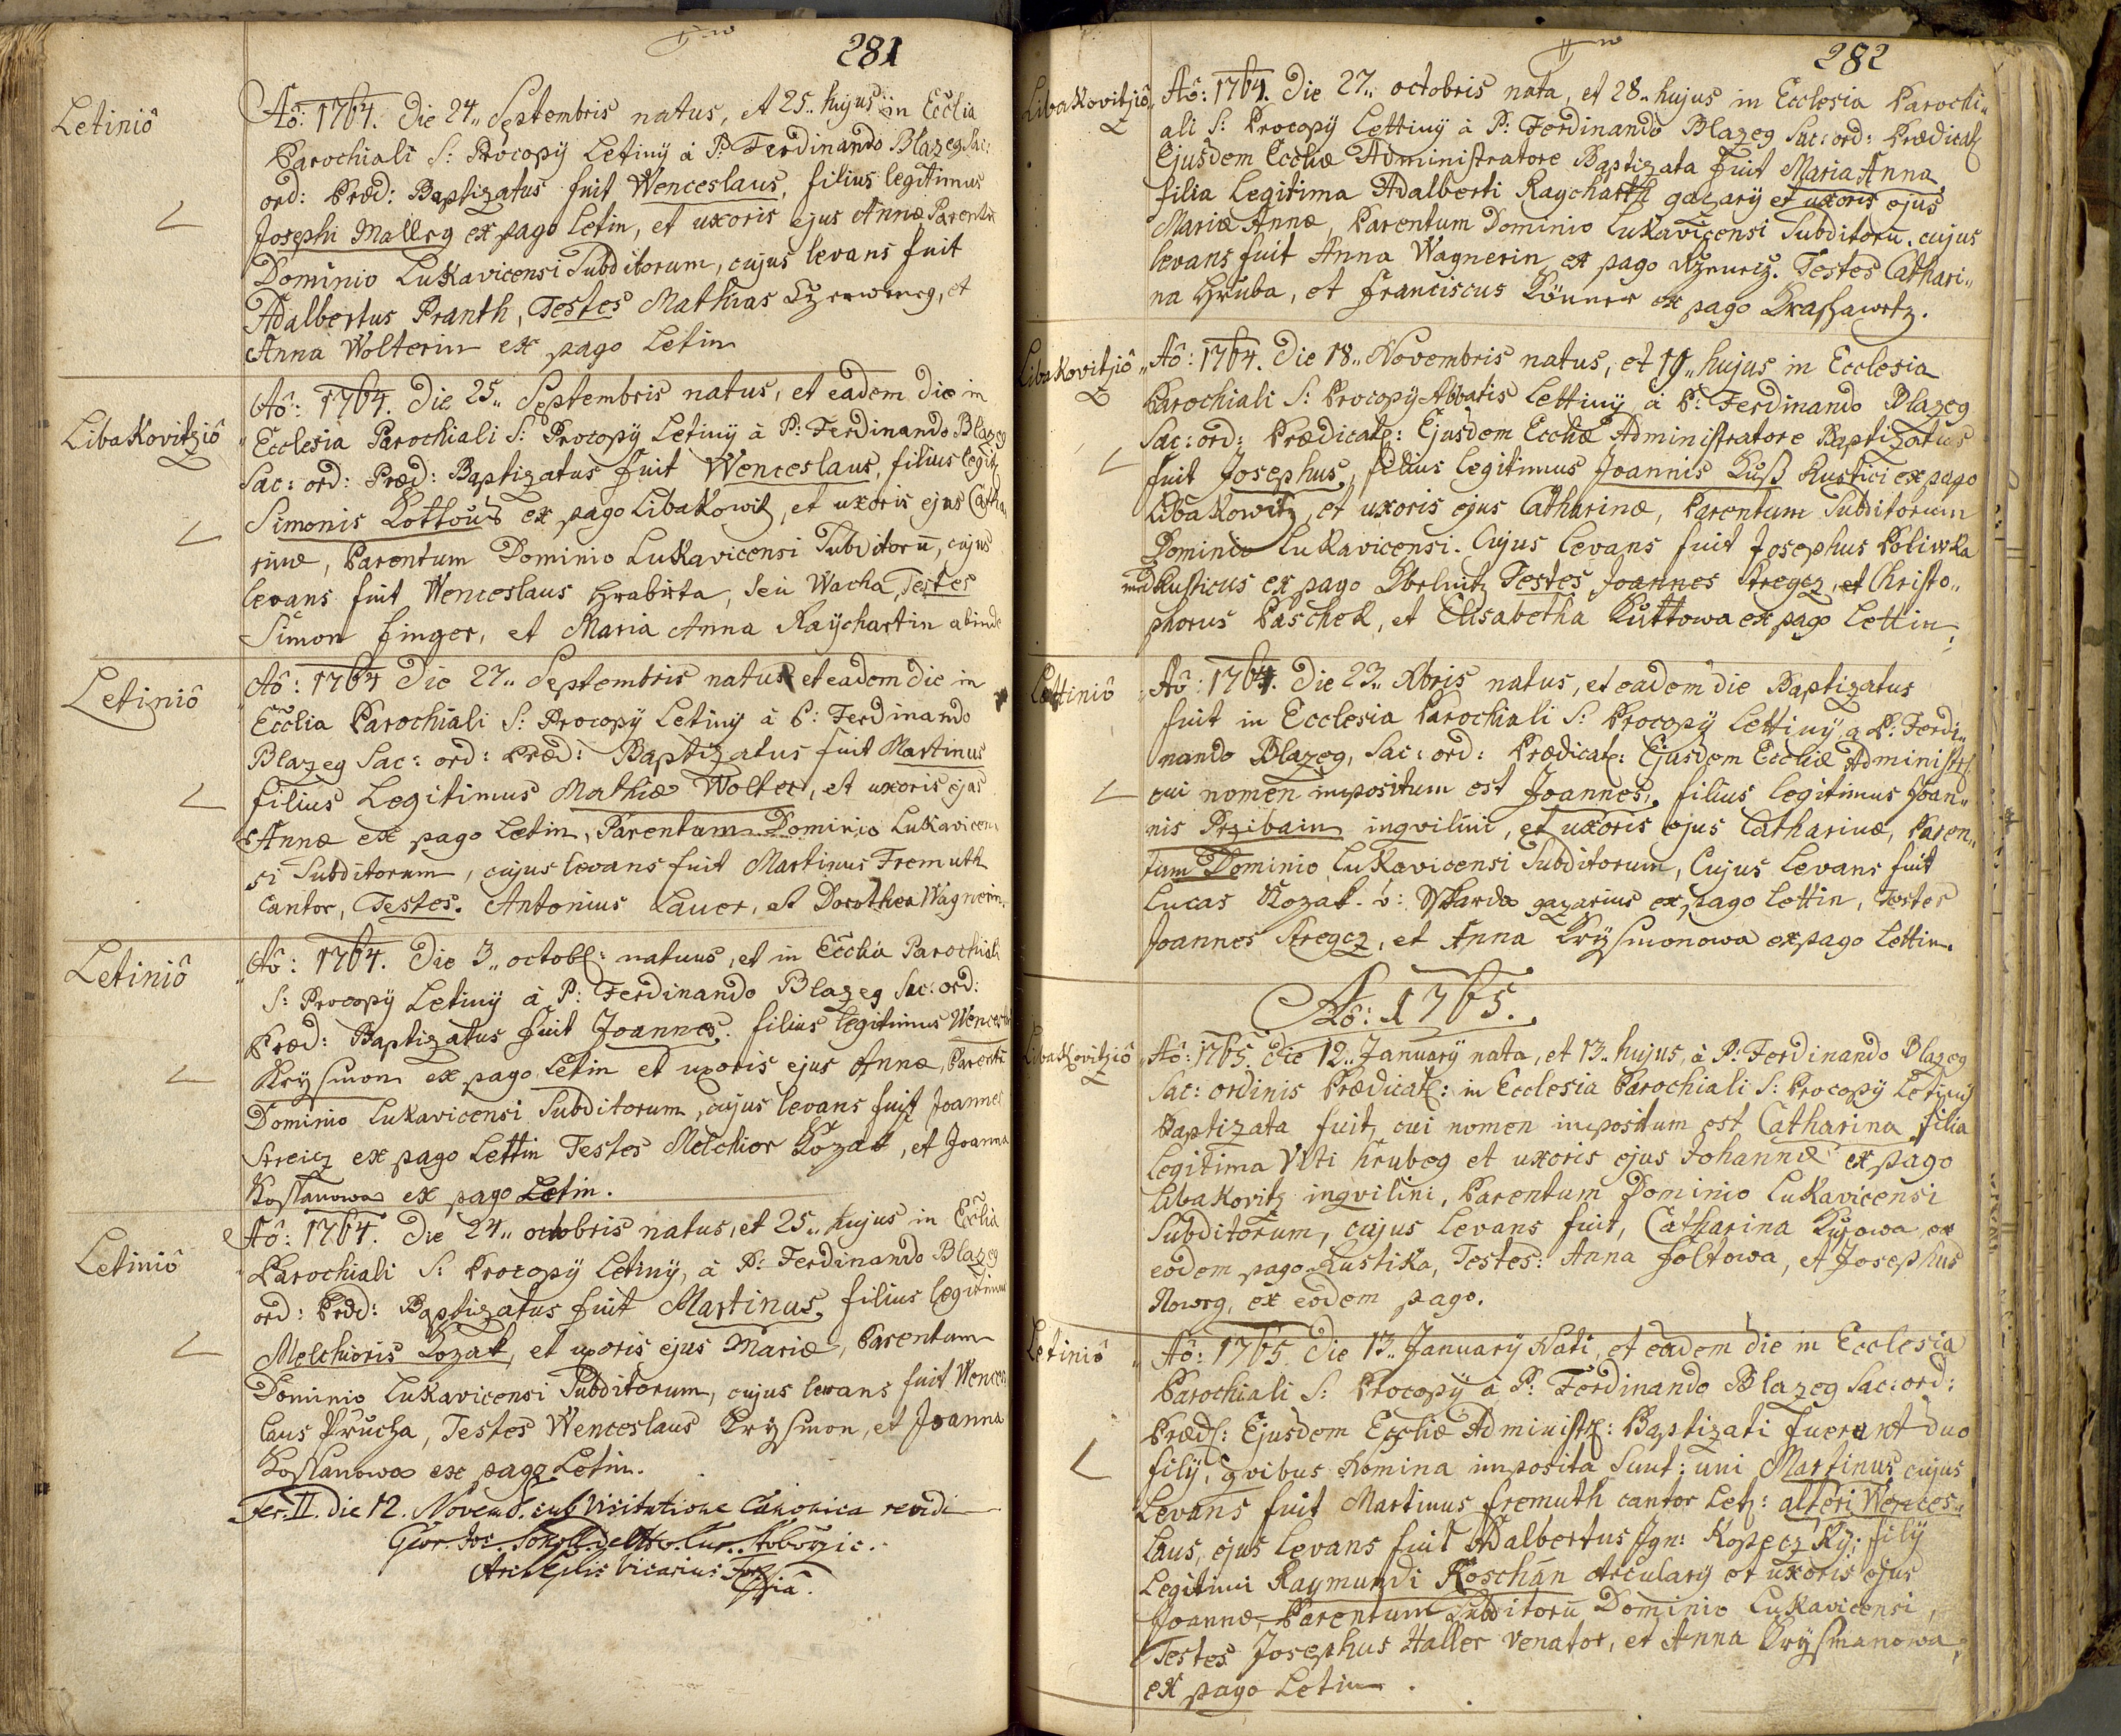 281
Letiniô
Aô: 1764. Die 24„ Septembris natus, et 25„ hujus in Ecclia
Parochiali S: Procopÿ Letinÿ à P: Ferdinando Blazeg Sac:
ord: Præd: Baptizatus fuit Wenceslaus, filius legitimus
Josephi Malleg ex pago Letin, et uxoris ejus Annæ Parentũ
Dominio Lukavicensi Subditorum, cujus levans fuit
Adalbertus Pranth, Testes Mathias et
Anna Wolterin ex pago Letin
Libakovitziô
Aô: 1764. Die 25„ Septembris natus, et eadem die in
Ecclesia Parochiali S: Procopÿ Letinÿ à P: Ferdinando Blazeg
Sac: ord: Præd: Baptizatus fuit Wenceslaus, filius legit
Simonis Kottous ex pago Libakowitz, et uxoris ejus Catha
rinæ, Parentum Dominio Lukavicensi Subditorũ, cujus
levans fuit Wenceslaus Hrabirta, seu Wacha, Testes
Simon Finger, et Maria Anna Raychartin abinde
Letiniô
Aô: 1764 Die 27„ Septembris natus et eadem die in
Ecclia Parochiali S: Procopÿ Letinÿ à P: Ferdinando
Blazeg Sac: ord: Præd: Baptizatus fuit Martinus
filius Legitimus Mathiæ Wolter, et uxoris ejus
Annæ ex pago Letin, Parentum Dominio Lukavicen
si Subditorum, cujus levans fuit Martinus Fremuth
Cantor, Testes. Antonius Lauer, et Dorothea Wagnerin.
Letiniô
Aô: 1764. Die 3„ octob: natuus, et in Ecclia Parochiali
S: Procopÿ Letinÿ à P: Ferdinando Blazeg Sac: ord:
Præd: Baptizatus fuit Joannes. filius legitimus Wencesl
Krysmon ex pago Letin et uxoris ejus Annæ, Parentũ
Dominio Lukavicensi Subditorum, cujus levans fuit Joannes
Streicz ex pago Lettin Testes Melchior Kozak, et Joanna
Kosslanowa ex pago Letin.
Letiniô
Aô: 1764. Die 24„ octobris natus, et 25„ hujus in Ecclia
Parochiali S: Procopÿ Letinÿ, à P: Ferdinando Blazeg
ord: Præd: Baptizatus fuit Martinus, filius legitimus
Melchioris Kozak, et uxoris ejus Mariæ, Parentum
Dominio Lukavicensi Subditorum, cujus levans fuit Wences
laus Prucha, Testes Wenceslaus Krysmon, et Joanna
Kosslanowa ex pago Letin.
Fer. II. die 12. Novemb. sub Visitatione Canonica revidi
Vicarius
282
Libakovitziô
Aô: 1764. Die 27„ octobris nata, et 28„ hujus in Ecclesia Parochi„
ali S: Procopÿ Lettinÿ à P: Ferdinando Blazeg Sac: ord: Prædicat
Ejusdem Eccliæ Administratore Baptizata fuit Maria Anna
filia Legitima Adalberti Raychartt gazarÿ et uxoris ejus
Mariæ Annæ, Parentum Dominio Lukavicensi Subditorũ. cujus
levans fuit Anna Wagnerin ex pago Testes Cathari„
na Hruba, et Franciscus Könner ex pago Krassawetz.
Libakovitziô
Aô: 1764. Die 18„ Novembris natus, et 19„ hujus in Ecclesia
Parochiali S: Procopÿ Abbatis Lettinÿ à P: Ferdinando Blazeg
Sac: ord: Prædicat: Ejusdem Eccliæ Administratore Baptizatus
fuit Josephus, filius legitimus Joannis Kuß Rustici ex pago
Libakowitz, et uxoris ejus Catharinæ, Parentum Subditorum
Dominio Lukavicensi. Cujus levans fuit Josephus Poliwka
Rusticus ex pago Testes Joannes Stregcz, et Christo„
phorus Paschek, et Elisabetha Kuttowa ex pago Lettin.
Lettiniô
Aô: 1764. Die 23„ Xbris natus, et eadem die Baptizatus
fuit in Ecclesia Parochiali S: Procopÿ Lettinÿ a P: Ferdi„
nando Blazeg, Sac: ord: Prædicat: Ejusdem Eccliæ Administr
cui nomen impositum est Joannes, filius legitimus Joan„
nis Przibain ingvilini, et uxoris ejus Catharinæ, Paren„
tum Dominio Lukavicensi Subditorum, Cujus levans fuit
Lucas Kozak. v: Skarda gazarius ex pago Lettin, Testes
Joannes Stregcz, et Anna Krysmonowa ex pago Lettin.
Aô: 1765.
Libakovitziô
Aô: 1765. Die 12„ Januarÿ nata, et 13„ hujus, à P: Ferdinando Blazeg
Sac: ordinis Prædicat: in Ecclesia Parochiali S: Procopÿ Letinÿ
Baptizata fuit, cui nomen impositum est Catharina filia
Legitima Viti hrubeg et uxoris ejus Johannæ ex pago
Libakovitz ingvilini, Parentum Dominio Lukavicensi
Subditorum, cujus levans fuit, Catharina Kusowa ex
eodem pago Rustika, Testes: Anna Foltowa, et Josephus
Noweg, ex eodem pago.
Letiniô
Aô: 1765. Die 13„ Januarÿ Nati, et eadem die in Ecclesia
Parochiali S: Procopÿ à P: Ferdinando Blazeg Sac: ord:
Præd: Ejusdem Eccliæ Administr: Baptizati fuerunt duo
filÿ, qvibus Nomina imposita sunt: uni Martinus cujus
Levans fuit Martinus fremuth cantor Let: alteri Wences„
laus, ejus levans fuit Adalbertus Ign: Kopeczkÿ; filÿ
Legitimi Raymundi Roschán Arcularÿ et uxoris ejus
Joannæ, Parentum Subditorũ Dominio Lukavicensi,
Testes Josephus Haller Venator, et Anna Krysmanowa,
ex pago Letin.